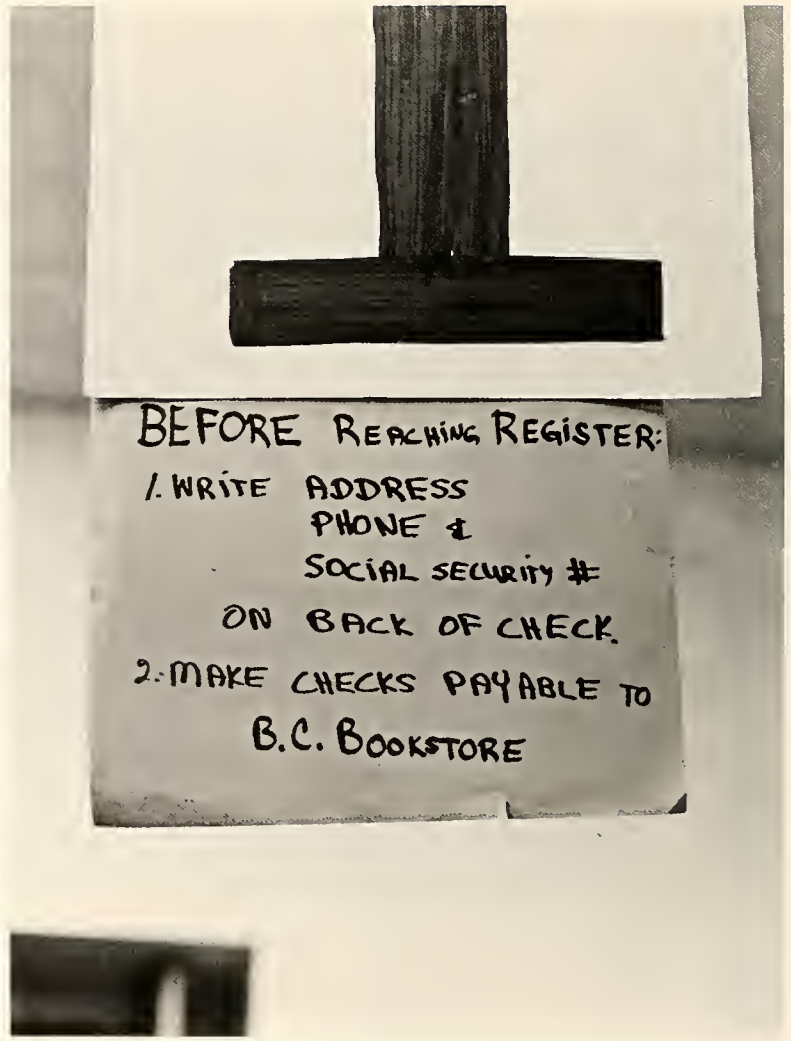 BEFORE REACHING REGISTER:
1. WRITE ADDRESS
PHONE &
SOCIAL SECURITY #
ON BACK OF CHECK.
2. MAKE CHECKS PAYABLE TO
B.C. BOOKSTORE